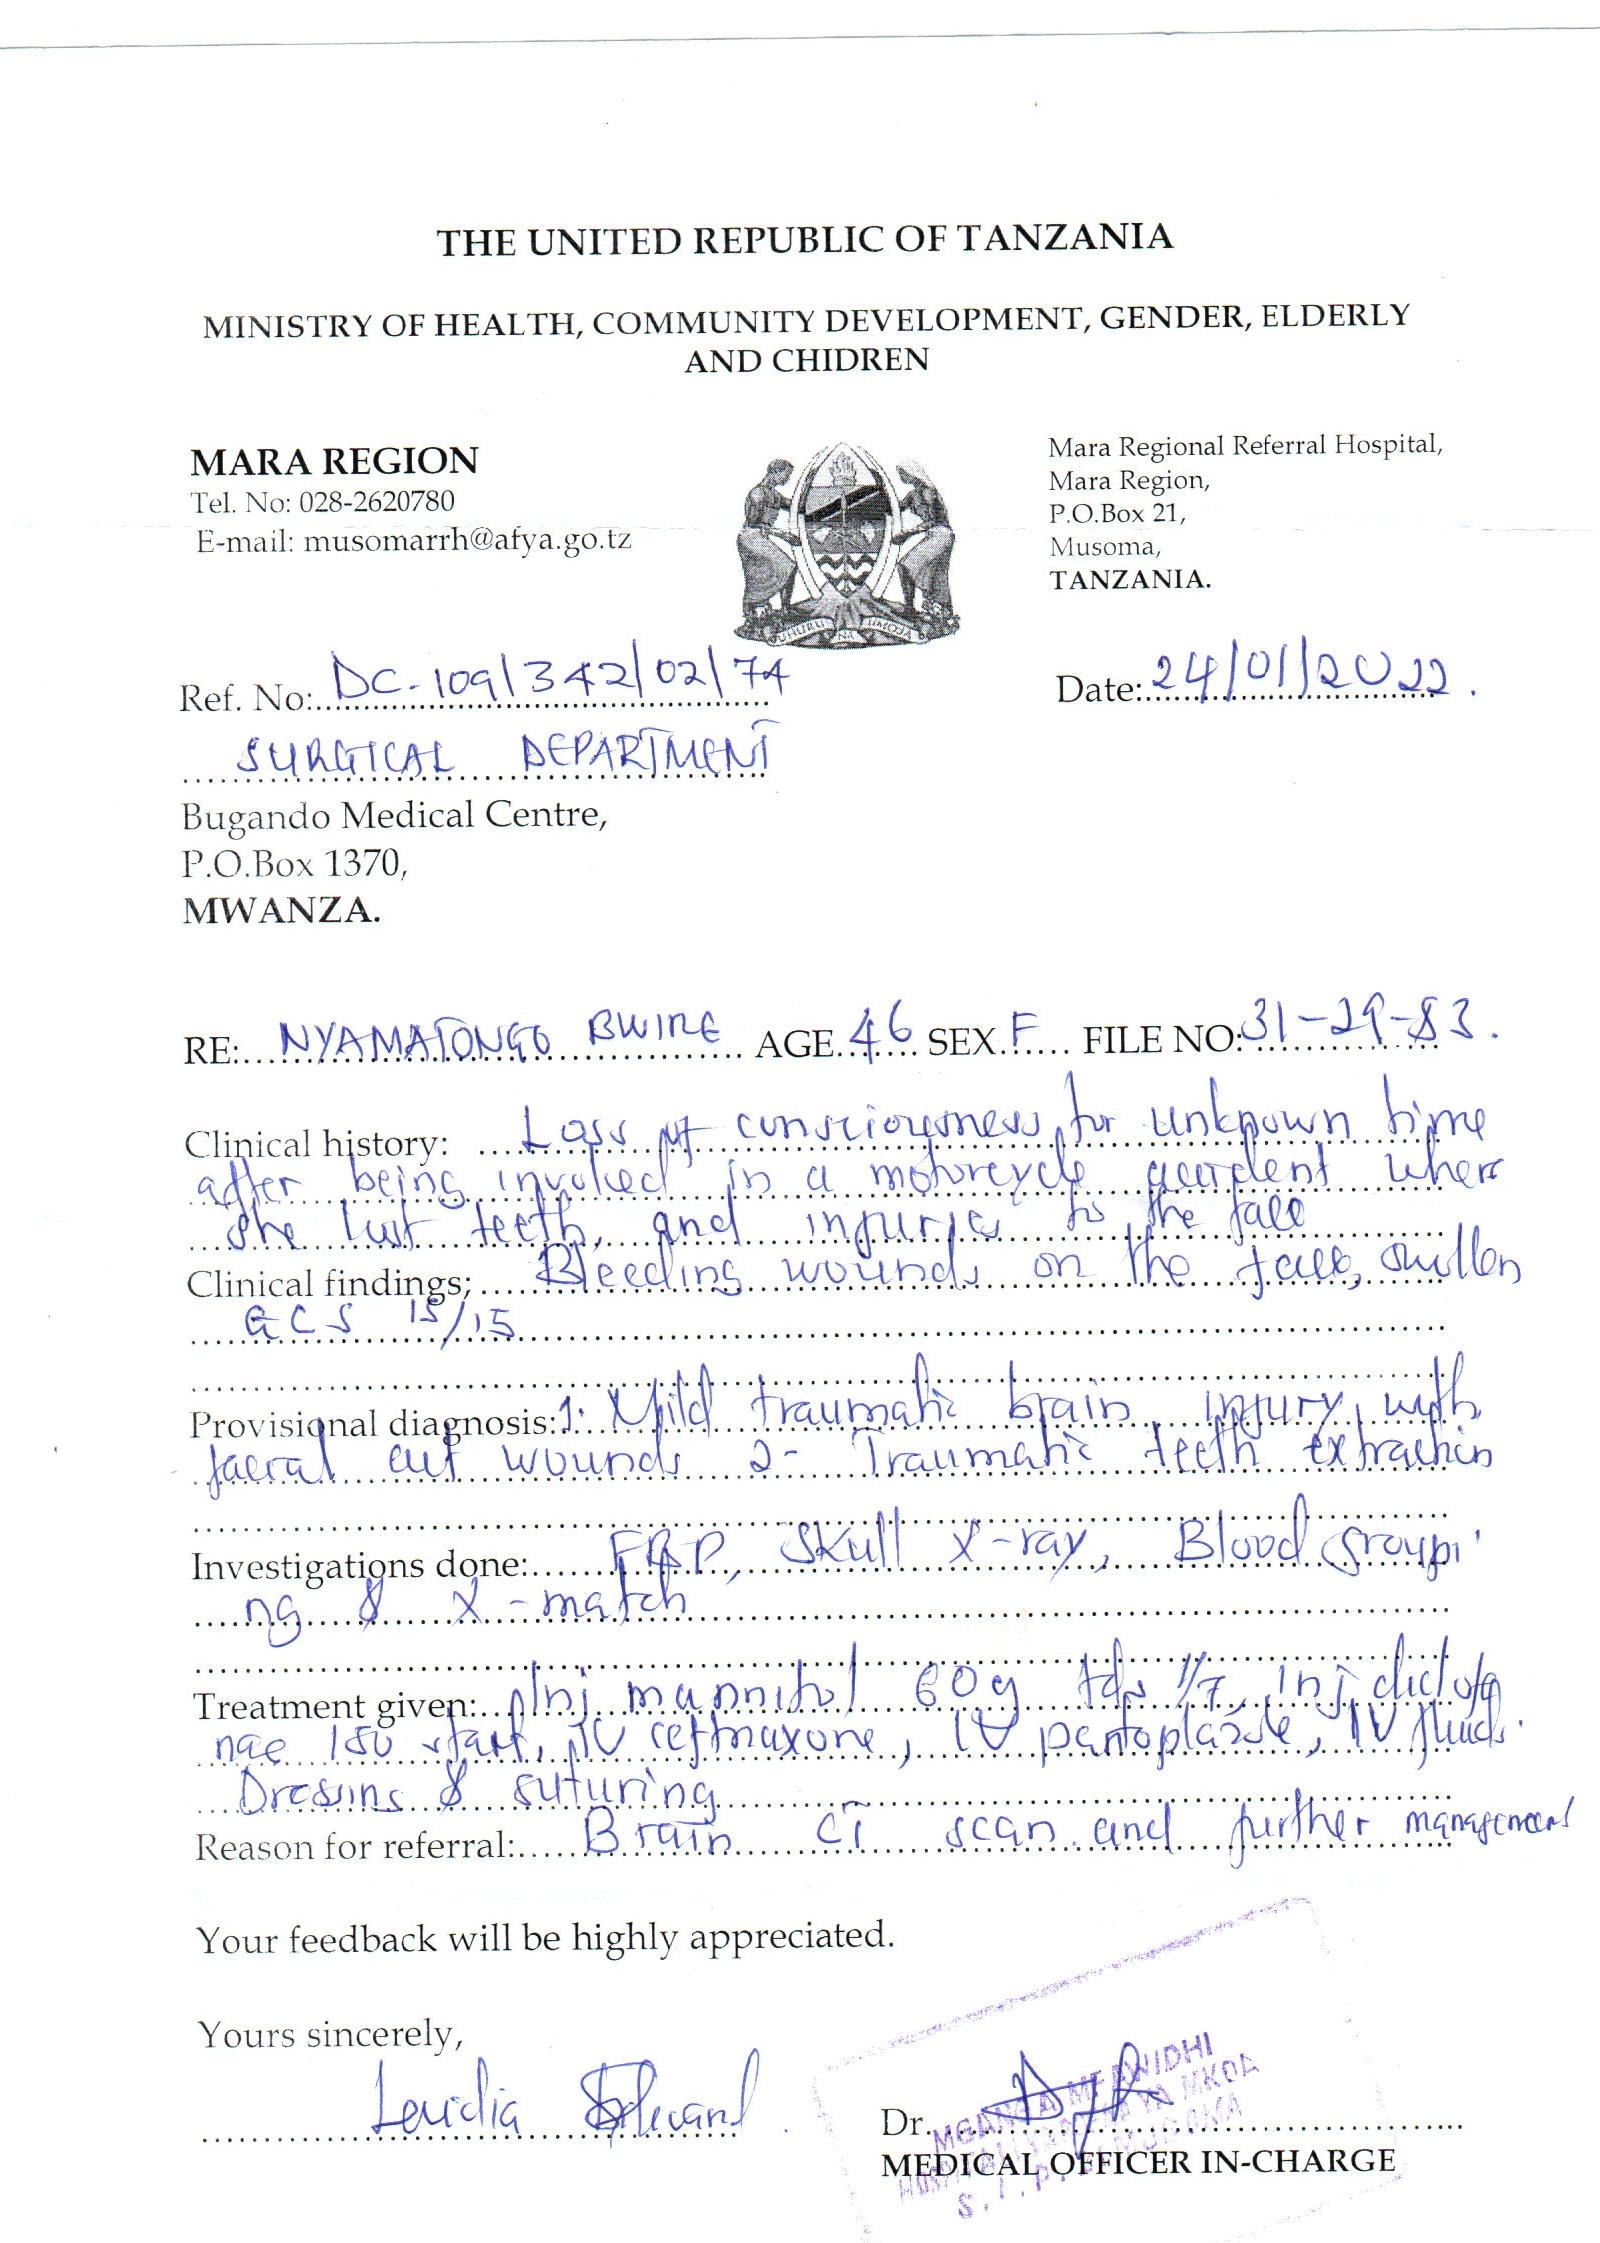 THE UNITED REPUBLIC OF TANZANIA
MINISTRY OF HEALTH, COMMUNITY DEVELOPMENT, GENDER, ELDERLY
AND CHIDREN
MARA REGION
Tel. No: 028-2620780
E-mail: musomarrh@afya.go.tz
UHURU NA UMOJA
Mara Regional Referral Hospital,
Mara Region,
P.O.Box 21,
Musoma,
TANZANIA.
Ref. No: DC-109/342/02/74
Date: 24/01/2022.
SURGICAL DEPARTMENT
Bugando Medical Centre,
P.O.Box 1370,
MWANZA.
RE: NYAMATONGO BWIRE AGE 46 SEX F FILE NO: 31-29-83.
Clinical history: Loss of consciousness for unknown time
after being involved in a motorcycle accident where
she lost teeth, and injuries to the face
Clinical findings; Bleeding wounds on the face, swollen
GCS 15/15
Provisional diagnosis: 1. Mild traumatic brain injury with
facial cut wounds 2- Traumatic teeth extraction
Investigations done: FBP, Skull X-ray, Blood groupi
ng & X-match
Treatment given: Inj mannitol 60g tds 1/7, inj diclofe
nac 150 start, IV ceftriaxone, IV pantoplazole, IV fluids.
Dressing & suturing
Reason for referral: Brain CT scan and further management
Your feedback will be highly appreciated.
Yours sincerely,
Dr.
MEDICAL OFFICER IN-CHARGE
MGANGA MFAWIDHI